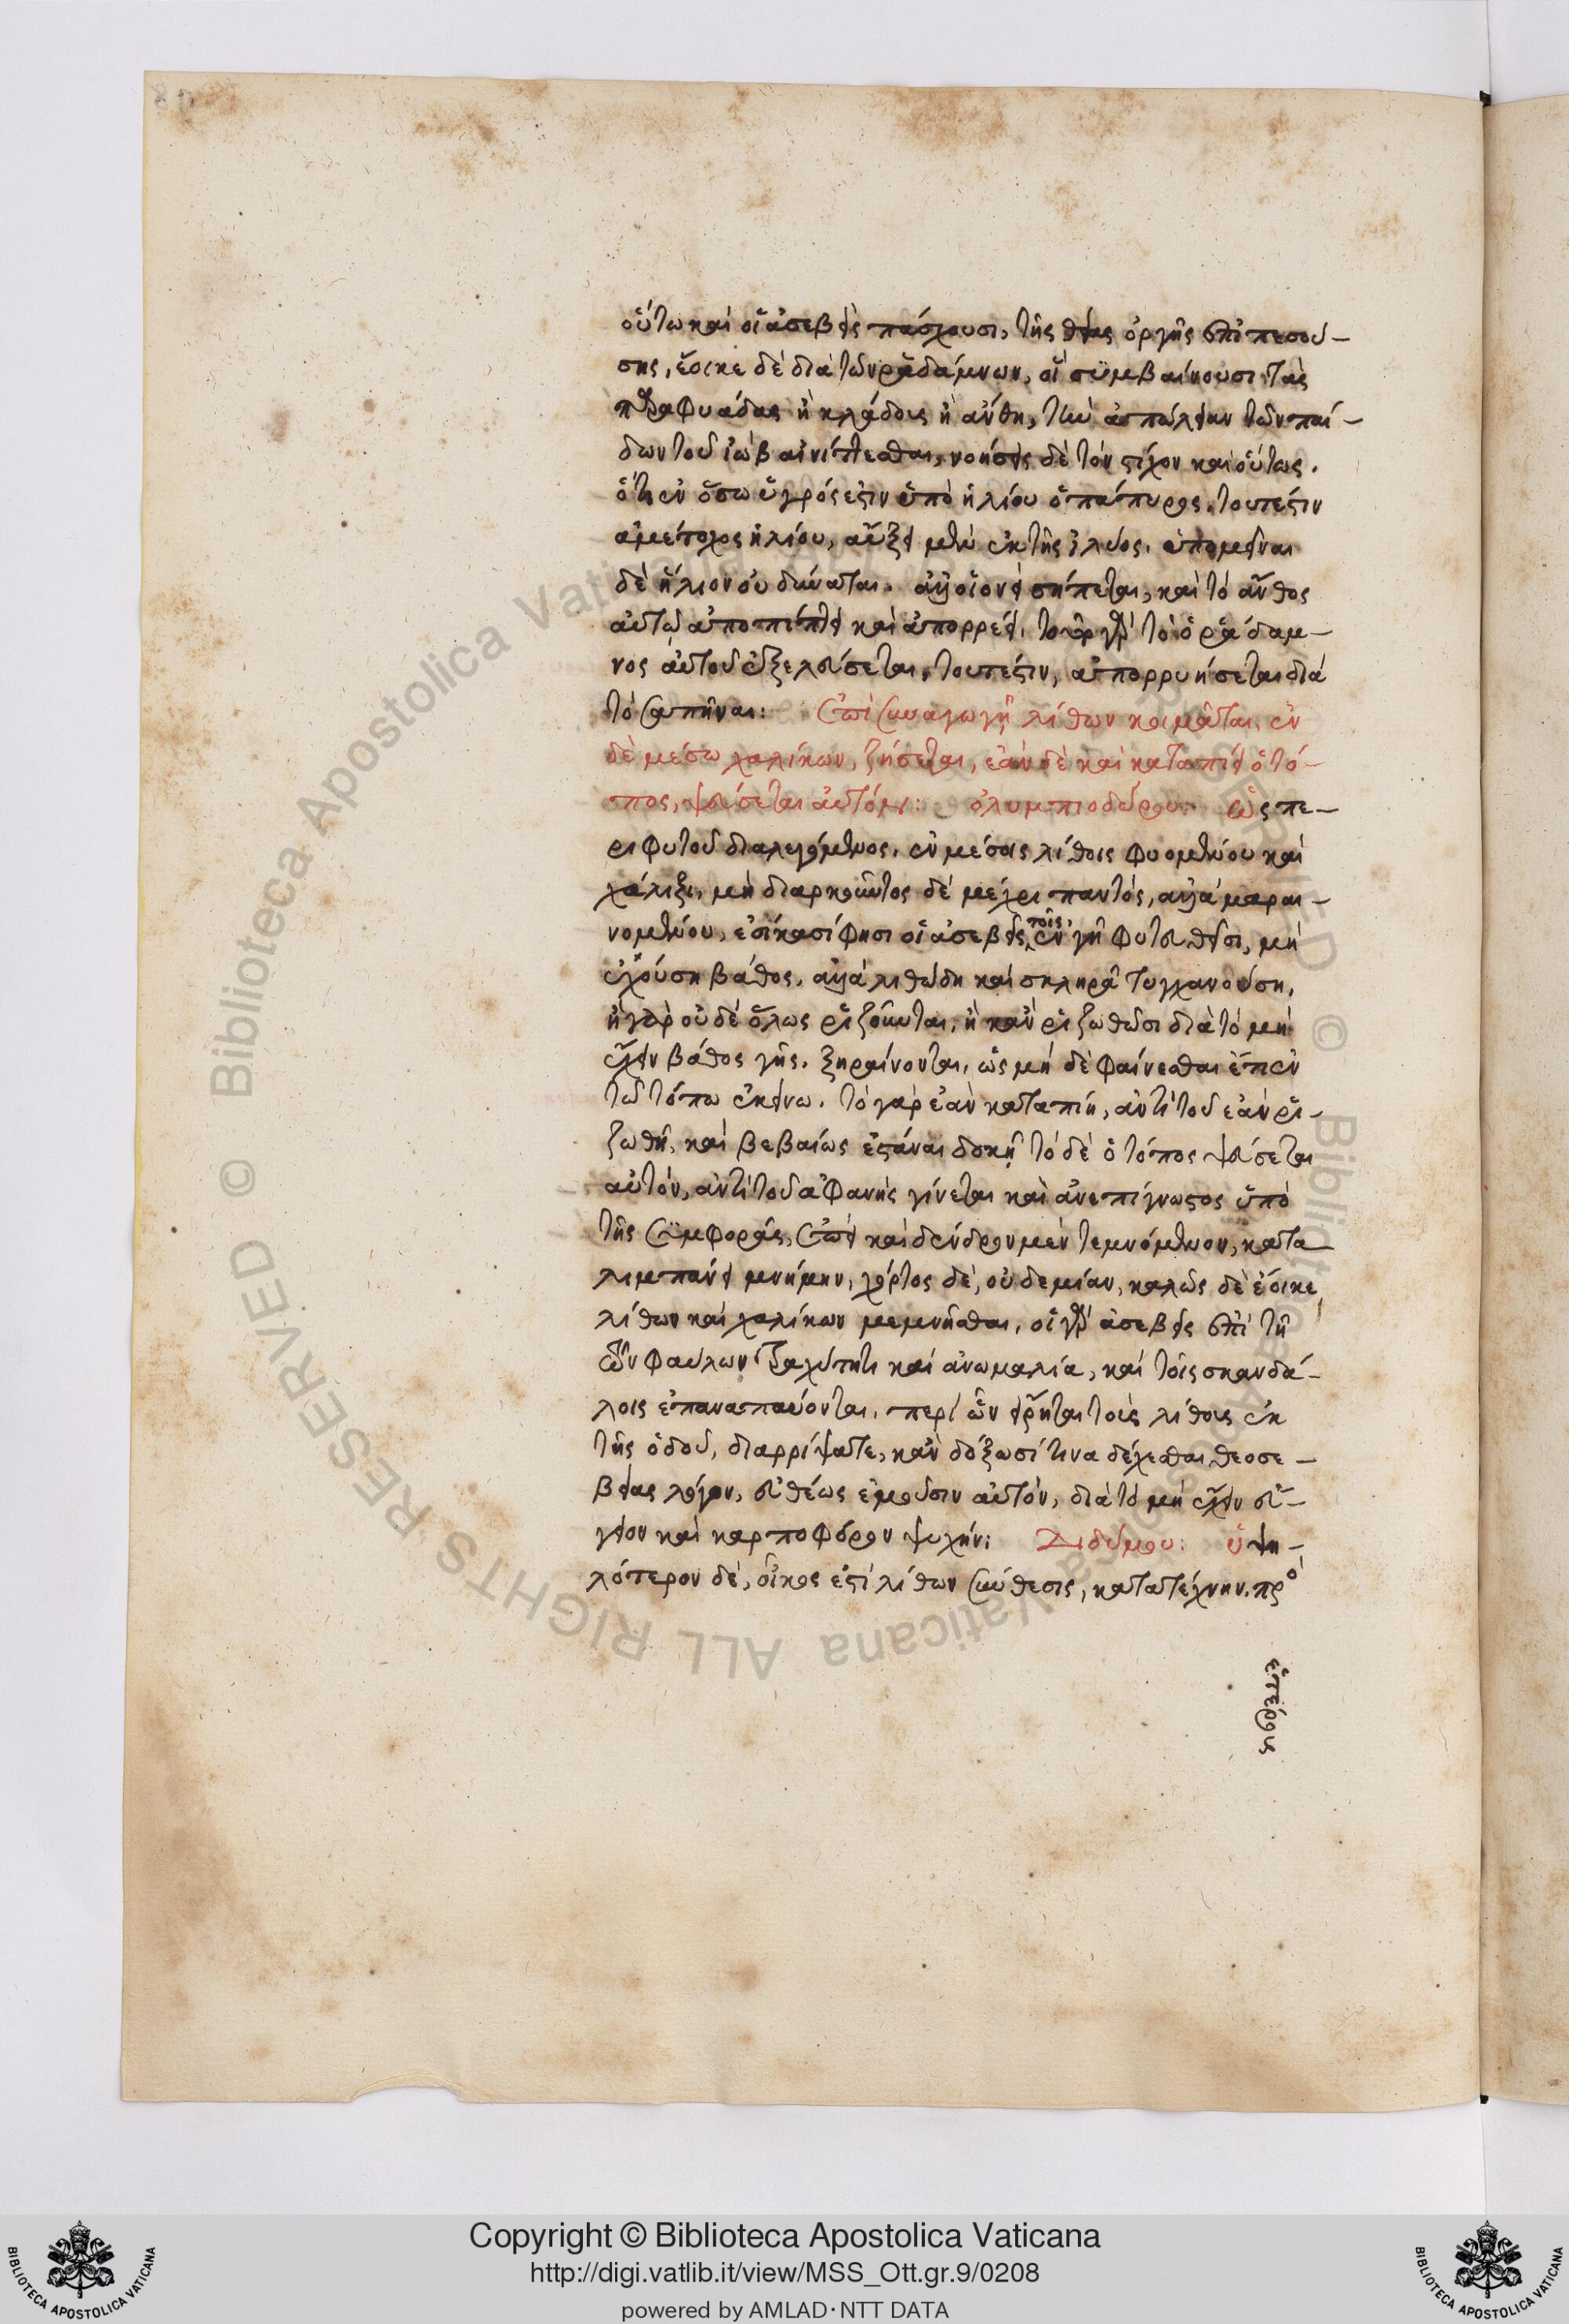 οὕτω καὶ οἱ ἀσεβεῖς πάσχουσι, τῆς θείας ὀργῆς ἐπιπεσού-
σης, ἔοικε δὲ διὰ τῶν ῥαδάμνων, οἳ συμβαίνουσι τὰς
παραφυάδας ἢ κλάδους ἢ ἄνθη, τὴν ἀπώλειαν τῶν παί-
δων τοῦ ἰὼβ αἰνίττεσθαι, νοήσεις δὲ τὸν στίχον καὶ οὕτως.
ὅτι ἐν ὅσω ὑγρός ἐστιν ὑπὸ ἡλίου ὁ πάπυρος. τουτέστιν
ἀμέτοχος ἡλίου, αὔξει μὲν ἐκ τῆς ἰλύος. ὑπομεῖναι
δὲ ἥλιον οὐ δύναται. ἀλλ οἱονεὶ σήπεται, καὶ τὸ ἄνθος
αὐτῶ ἀποπίπτει καὶ ἀπορρεῖ. τὸ γὰρ τὸ ὁ ῥάδαμ-
νος αὐτοῦ ἐξελεύσεται, τουτέστιν, ἀπορρυήσεται διὰ
τὸ σαπῆναι: ἐπὶ συναγωγῆ λίθων κοιμᾶται, ἐν
δὲ μέσω χαλίκων, ζήσεται, ἐὰν δὲ καὶ καταπίει ὁ τό-
πος, ψεύσεται αὐτόν: ὀλυμπιοδώρου: ὡς πε-
ρι φυτοῦ διαλεγόμενος. ἐν μέσοις λίθοις φυομένου καὶ
χάλιξι, μὴ διαρκοῦντος δὲ μέχρι παντός, ἀλλὰ μαραι-
νομένου, ἐοίκασί φησι οἱ ἀσεβεῖς, τοῖς ἐν γῆ φυτευθεῖσι, μὴ
ἐχούση βάθος. ἀλλὰ λιθώδη καὶ σκληρᾶ τυγχανούση.
ἢ γὰρ οὐδὲ ὅλως ῥιζοῦνται, ἢ κἂν ῥιζωθῶσι διὰ τὸ μὴ
ἔχειν βάθος γῆς. ξηραίνονται, ὡς μὴ δὲ φαίνεσθαι ἔτι ἐν
τῶ τόπω ἐκείνω. τὸ γὰρ ἐὰν καταπίη, ἀντὶ τοῦ ἐὰν ῥι-
ζωθῆ, καὶ βεβαίως ἑστάναι δοκῆ τὸ δὲ ὁ τόπος ψεύσεται
αὐτόν, ἀντὶ τοῦ ἀφανὴς γίνεται καὶ ἀνεπίγνωστος ὑπὸ
τῆς συμφορᾶς, ἐπεὶ καὶ δένδρον μὲν τεμνόμενον, κατα
λιμπάνει μνήμην, χόρτος δὲ, οὐδεμίαν, καλῶς δὲ ἔοικε
λίθων καὶ χαλίκων μεμνῆσθαι, οἱ γὰρ ἀσεβεῖς ἐπὶ τῆ
τῶν φαύλων τραχύτητι καὶ ἀνωμαλία, καὶ τοῖς σκανδά-
λοις ἐπαναπαύονται. περὶ ὧν εἴρηται τοὺς λίθους ἐκ
τῆς ὁδοῦ, διαρρίψατε, κἂν δόξωσί τινα δέχεσθαι θεοσε-
βείας λόγον, εὐθέως ἐμοῦσιν αὐτόν, διὰ τὸ μὴ ἔχειν εὔ-
γειον καὶ καρποφόρον ψυχήν: Διδύμου: ὑψη-
λότερον δὲ, οἶκος ἐστὶ λίθων σύνθεσις, κατὰ τέχνην. πρὸ
ἑτέρους